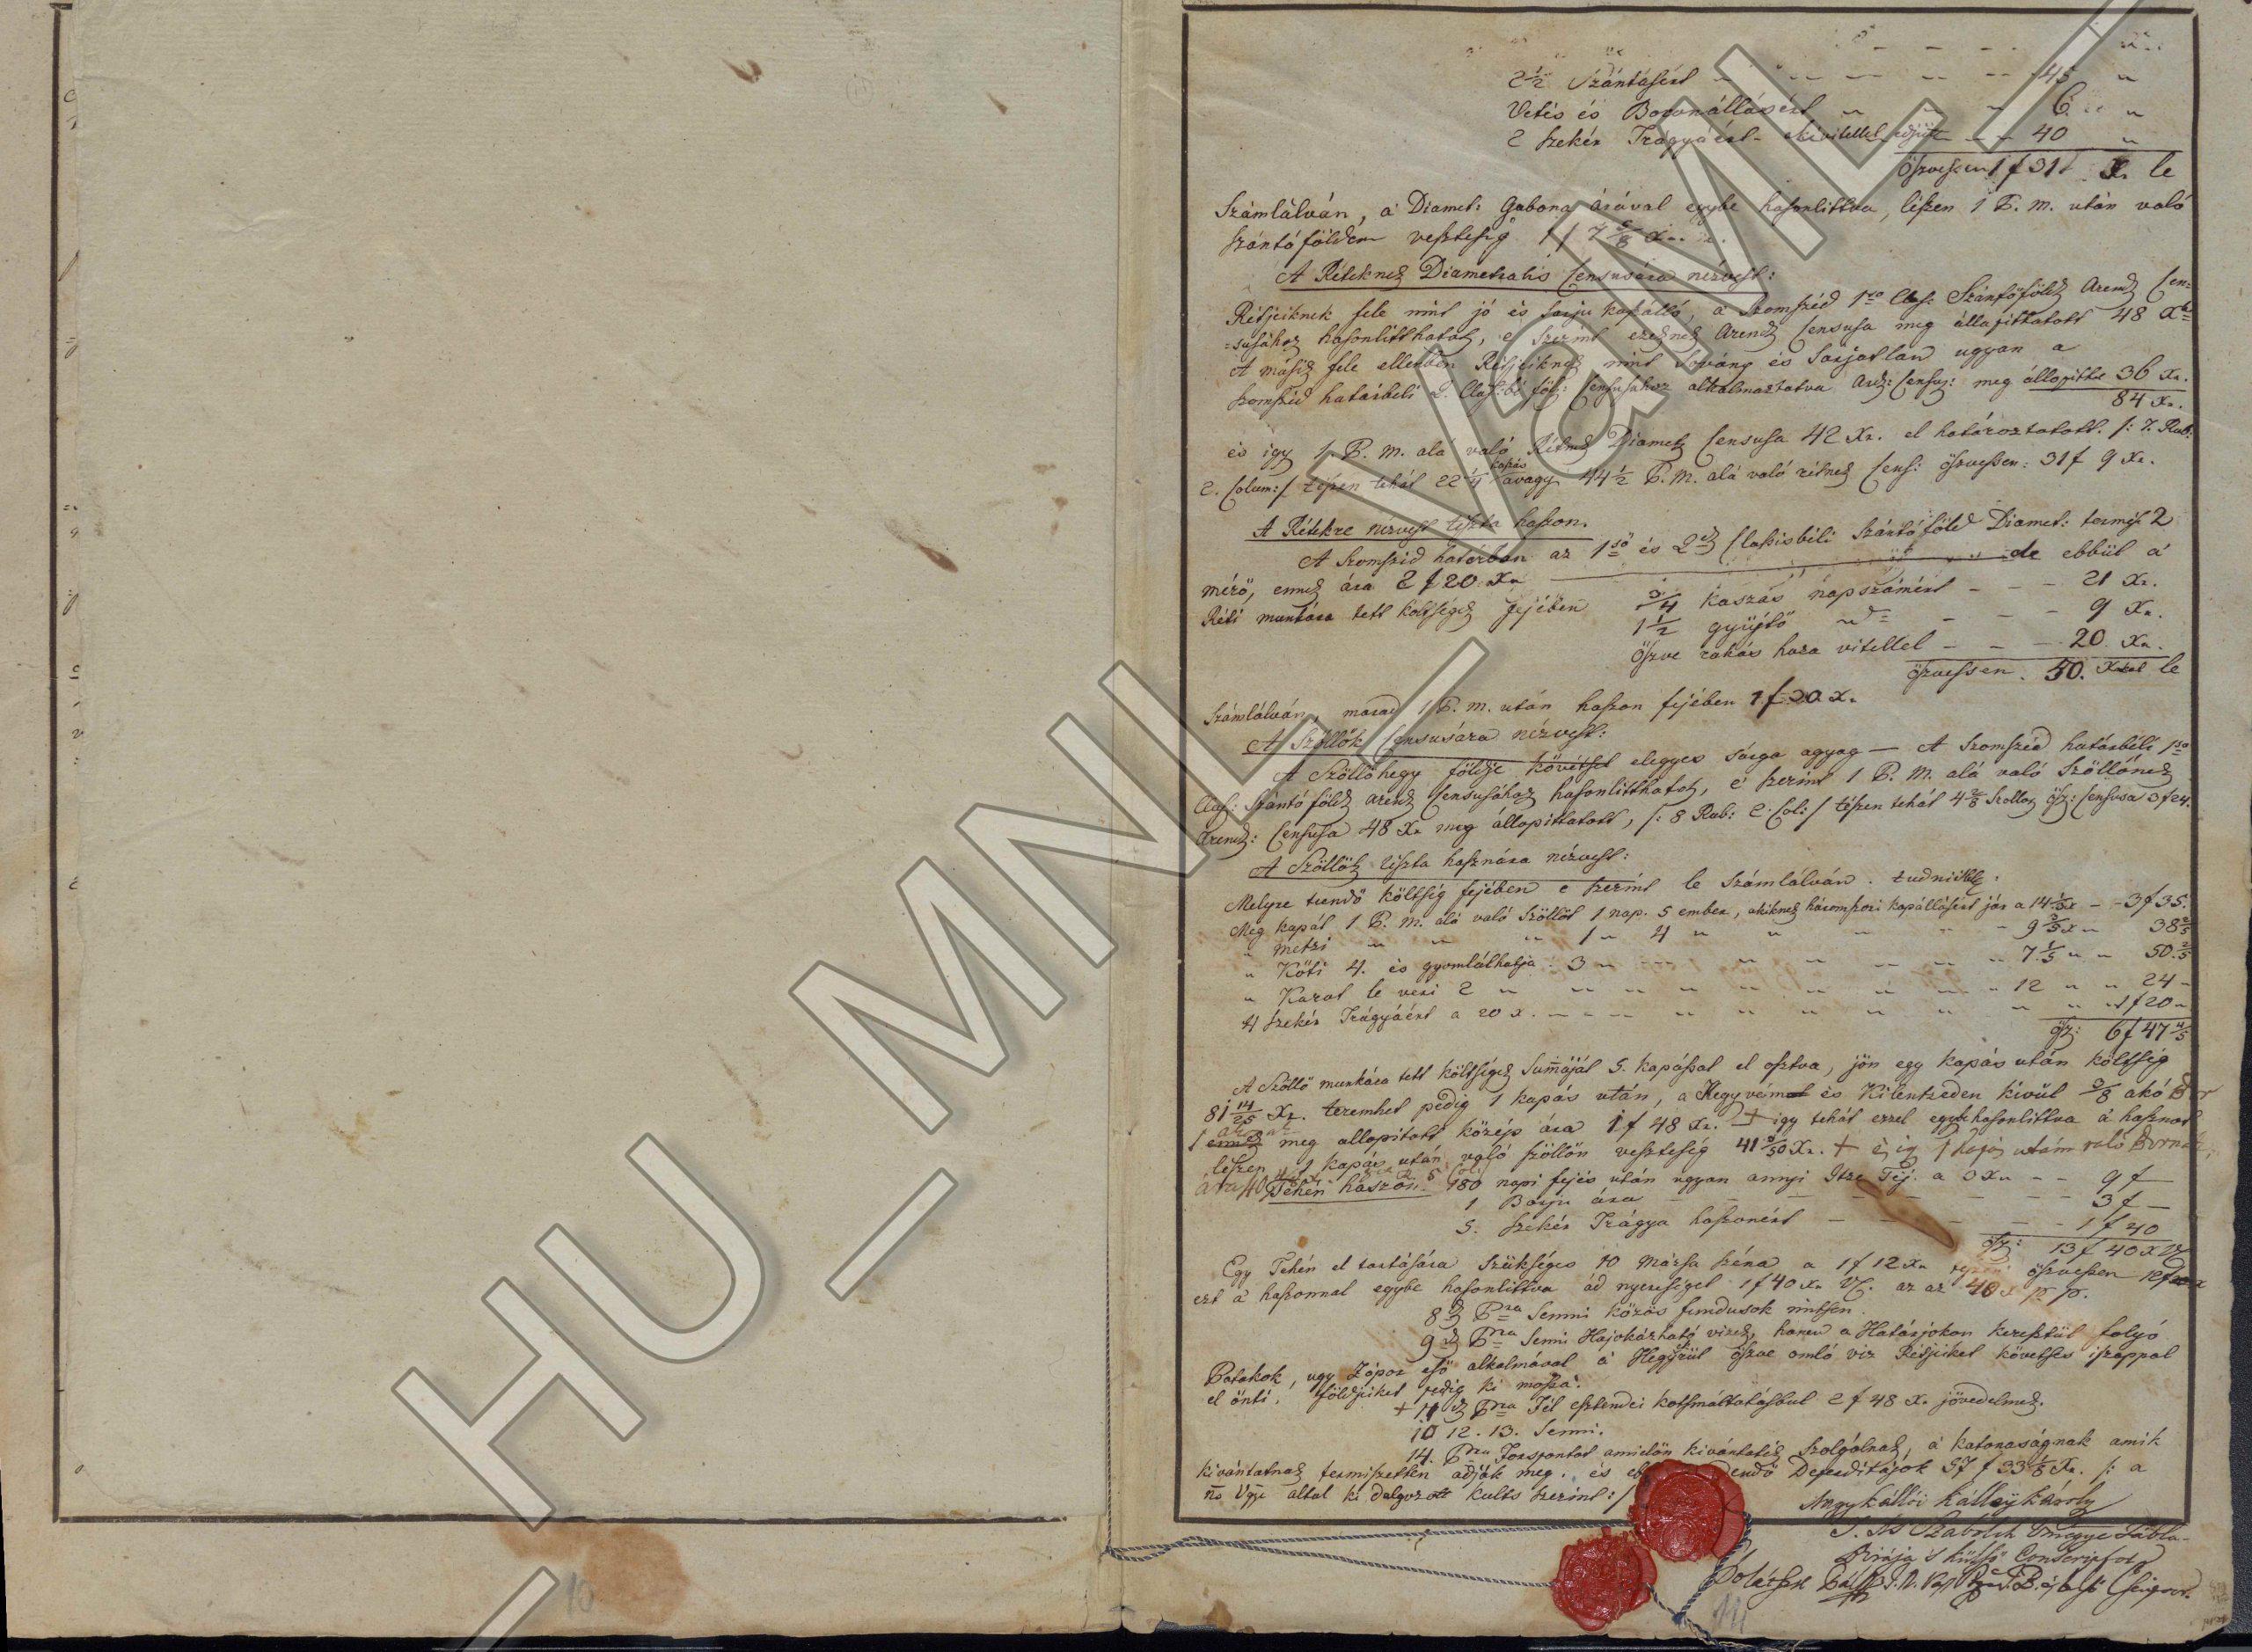 2 1/2 Szántásért 45 "
Vetés és Boronállásért " 6 "
2 szekér Trágyáért kivitettel edjütt — 40 "
öszvessen 1 f 31 Xr. le
Számlálván, a' Diamet: Gabona árával egybe hasonlittva, lészen 1 P. M. után való
szántóföldem vesztesig 1 f 7 Xr.
A Rétekneḱ Diametralis Censusára nézvest:
Rétjeiknek fele mint jó és sarju kaszálló, a szomszéd 1ső Class: Szántóföldḱ Arendḱ Cen=
=susához hasonlitthatók, e szerint ezekneḱ Arendḱ Censusa meg állapittatott 48 Xr
A másiḱ fele ellenben Rétjeikneḱ mint sovány és sarjatlan ugyan a
szomszéd határbéli 2. Class:bé föl: Censusához alkalmaztatva Ard: Census: meg állapitta 36 Xr.
84 Xr.
és igy 1. P. M. alá való Rétneḱ Diametḱ Censusa 42 Xr. el határoztatott. /: 7. Rub:
2. Colum:/ tészen tehát 22 1/4 kaszás avagy 44 1/2 P. M. alá való rétneḱ Cens: öszvessen: 31 f 9 Xr.
A Rétekre nézvest tiszta haszon.
A szomszéd határban az 1ső és 2iḱ Classisbéli Szántóföld Diamet: termése 2
mérő, enneḱ ára 2 f 20 Xr de ebbül a'
Réti munkára tett költségeḱ fejében 3/4 kaszás napszámért — — 21 Xr.
1 1/2 gyüjtő — — — 9 Xr.
öszve rakás haza vitellel — — — 20 Xr.
öszvessen. 50. Xrat le
Számlálván, marad 1 P. M. után haszon fejében 1 f 30 Xr.
A Szöllők Censusára nézvest:
A Szöllőhegy földje követses elegyes sárga agyag — A szomszéd határbéli 1ső
Clas: Szántóföldḱ arendḱ Censusához hasonlitthatott, e' szerint 1 P. M. alá való Szöllőneḱ
Arendḱ: Censusa 48 Xr meg állapittatott, /: 8 Rub: 2 Col:/ tészen tehát 4 2/8 Szőllőḱ ösz: Censusa 3 f 24.
A Szöllőḱ tiszta hasznára nézvest:
Melyre teendő költség fejében e szerint le Számlálván. tudniillik:
Meg kapál 1 P. M. alá való Szöllőt 1 nap. 5 ember, akikneḱ háromszori kapállásért jár a 14 1/3 x — 3 f 35.
" metzi " " " 1 " 4 " " " " 9 3/5 x " 38 2/5
" Köti 4. és gyomlálhatja: 3 " " " " " 7 1/5 " " 50 2/5
" Karót le veri 2 " " " " " " 12 " " 24 "
4 szekér Trágyáért a 20 x. " " " " " " " 1 f 20 "
ösz: 6 f 47 4/5
A Szöllő munkára tett költségeḱ Summáját 5. kapással el osztva, jön egy kapás után költség
81 14/25 Xr. teremhet pedig 1 kapás után, a Hegyvám és Kilentzeden kívül 3/8 akó Bor
enneḱ meg állapitott közép ára 1 f 48 Xr. + igy tehát ezzel egybe hasonlittva a hasznot
lészen 1 kapás után való szöllőn vesztesig 41 3/50 Xr.
Tehén haszon. 180 napi fejés után ugyan annyi Itze Téj. a 3 Xr — — 9 f —
1 Borju ára — — — 3 f —
5. szekér Trágya haszonért — — — 1 f 40
ösz: 13 f 40 x
Egy Tehén el tartására szükséges 10 Mázsa széna a 1 f 12 Xr öszvessen 12 f
ezt a' haszonnal egybe hasonlittva ád nyereséget 1 f 40 Xr az az 40 x p. p.
8iḱ Pra Semmi közös fundusok nintsen.
9iḱ Pra Semmi Hajokázható vizeḱ, hanem a Határjokon keresztül folyó
Patakok, ugy Zápor eső alkalmával a' Hegyrül öszve omló viz Rétjeiket követses iszappal
el önti, földjeiket pedig ki mossa.
+ 11iḱ Pra Fél esztendei kotsmáltatásbul 2 f 48 X. jövedelmeḱ.
10 12. 13. Semmi.
14. Pra Forspontot amidőn kivántatiḱ szolgálnaḱ, a' katonaságnak amik
kivántatnaḱ termiszetben adják meg. és Deperditájok 57 f 33 Xr. /: a
Ns Vgye által ki dolgozott kults szerint:/
Nagy Kállói Kállay Károly
T. Ns Szabolch Vmegye Tábla-
Birája 's külső Conscriptor